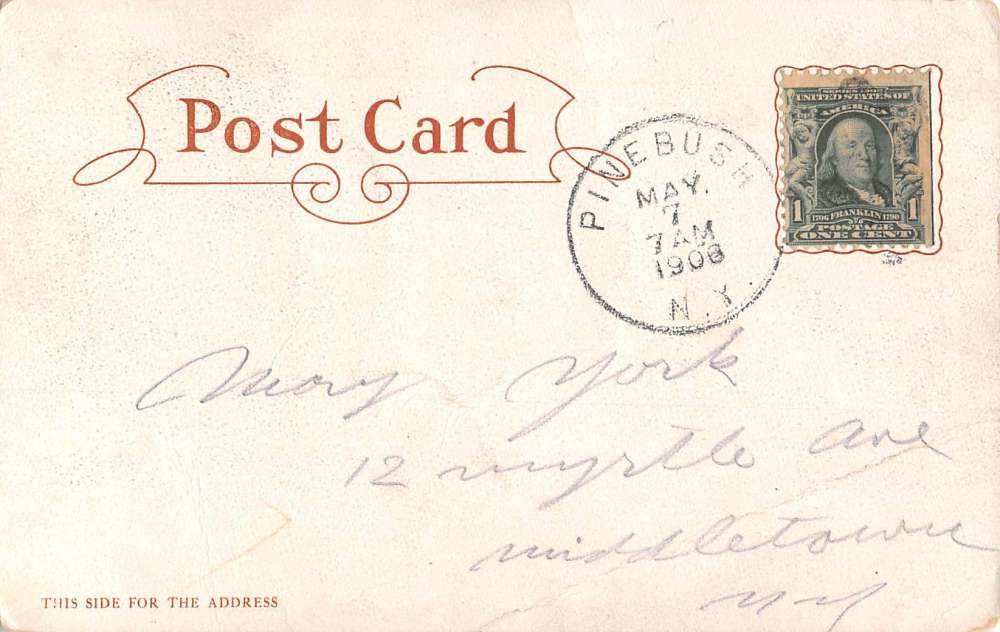 Post Card
PINEBUSH
MAY.
7
7 AM
1906
N.Y.
SERIES 1902
UNITED STATES OF
AMERICA
1 1706 FRANKLIN 1790 1
POSTAGE
ONE CENT
Mary York
12 myrtle Ave
middletown
ny
THIS SIDE FOR THE ADDRESS